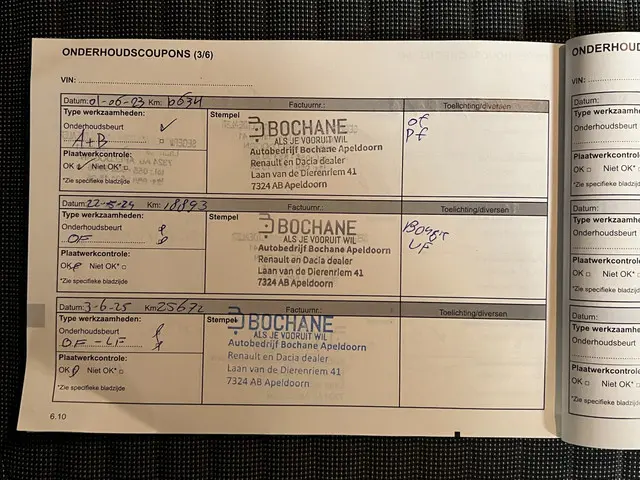 ONDERHOUDSCOUPONS (3/6)
VIN:
Datum: 01-06-23 Km: 6634 Factuurnr.: Toelichting/diversen
Type werkzaamheden:
Onderhoudsbeurt ✓
A+B
Plaatwerkcontrole:
OK ✓ Niet OK*
*Zie specifieke bladzijde
Stempel
BOCHANE
ALS JE VOORUIT WIL
Autobedrijf Bochane Apeldoorn
Renault en Dacia dealer
Laan van de Dierenriem 41
7324 AB Apeldoorn
OF
PF
Datum: 22-5-24 Km: 18893 Factuurnr.: Toelichting/diversen
Type werkzaamheden:
Onderhoudsbeurt
OF
Plaatwerkcontrole:
OK Niet OK*
*Zie specifieke bladzijde
Stempel
BOCHANE
ALS JE VOORUIT WIL
Autobedrijf Bochane Apeldoorn
Renault en Dacia dealer
Laan van de Dierenriem 41
7324 AB Apeldoorn
LF
Datum: 3-6-25 Km 25672 Factuurnr.: Toelichting/diversen
Type werkzaamheden:
Onderhoudsbeurt
OF - LF
Plaatwerkcontrole:
OK Niet OK*
*Zie specifieke bladzijde
Stempel
BOCHANE
ALS JE VOORUIT WIL
Autobedrijf Bochane Apeldoorn
Renault en Dacia dealer
Laan van de Dierenriem 41
7324 AB Apeldoorn
6.10
ONDERHOUD
VIN:
Datum:
Type werkzaam
Onderhoudsbeurt
Plaatwerkcontrole
OK Niet OK*
*Zie specifieke bladz
Datum:
Type werkzaam
Onderhoudsbeurt
Plaatwerkcontrol
OK Niet OK*
*Zie specifieke bladz
Datum:
Type werkzaam
Onderhoudsbeurt
Plaatwerkcontrol
OK Niet OK*
*Zie specifieke bladz